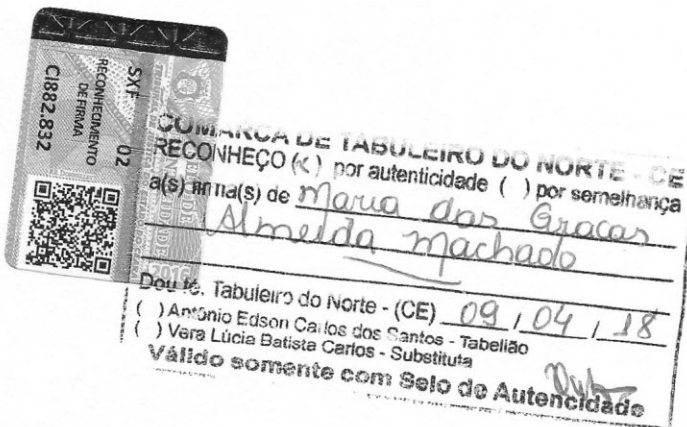 SXF 02
RECONHECIMENTO
DE FIRMA
CI882.832
2016
COMARCA DE TABULEIRO DO NORTE - CE
RECONHEÇO (x) por autenticidade ( ) por semelhança
a(s) firma(s) de Maria das Graças
Almeida Machado
Dou fé. Tabuleiro do Norte - (CE) 09 / 04 / 18
( ) Antônio Edson Carlos dos Santos - Tabelião
( ) Vera Lúcia Batista Carlos - Substituta
Válido somente com Selo de Autencidade